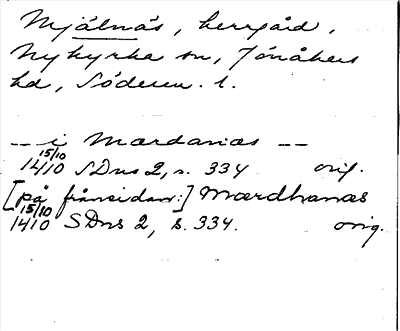 Mjälnäs, herrgård,
Nykyrka sn, Jönåkers
hd, Söderm. l.
-- i Mærdanæs --
15/10 1410 SDns 2, s. 334 orig.
[på frånsidan:] Mærdhanæs
15/10 1410 SDns 2, s. 334. orig.